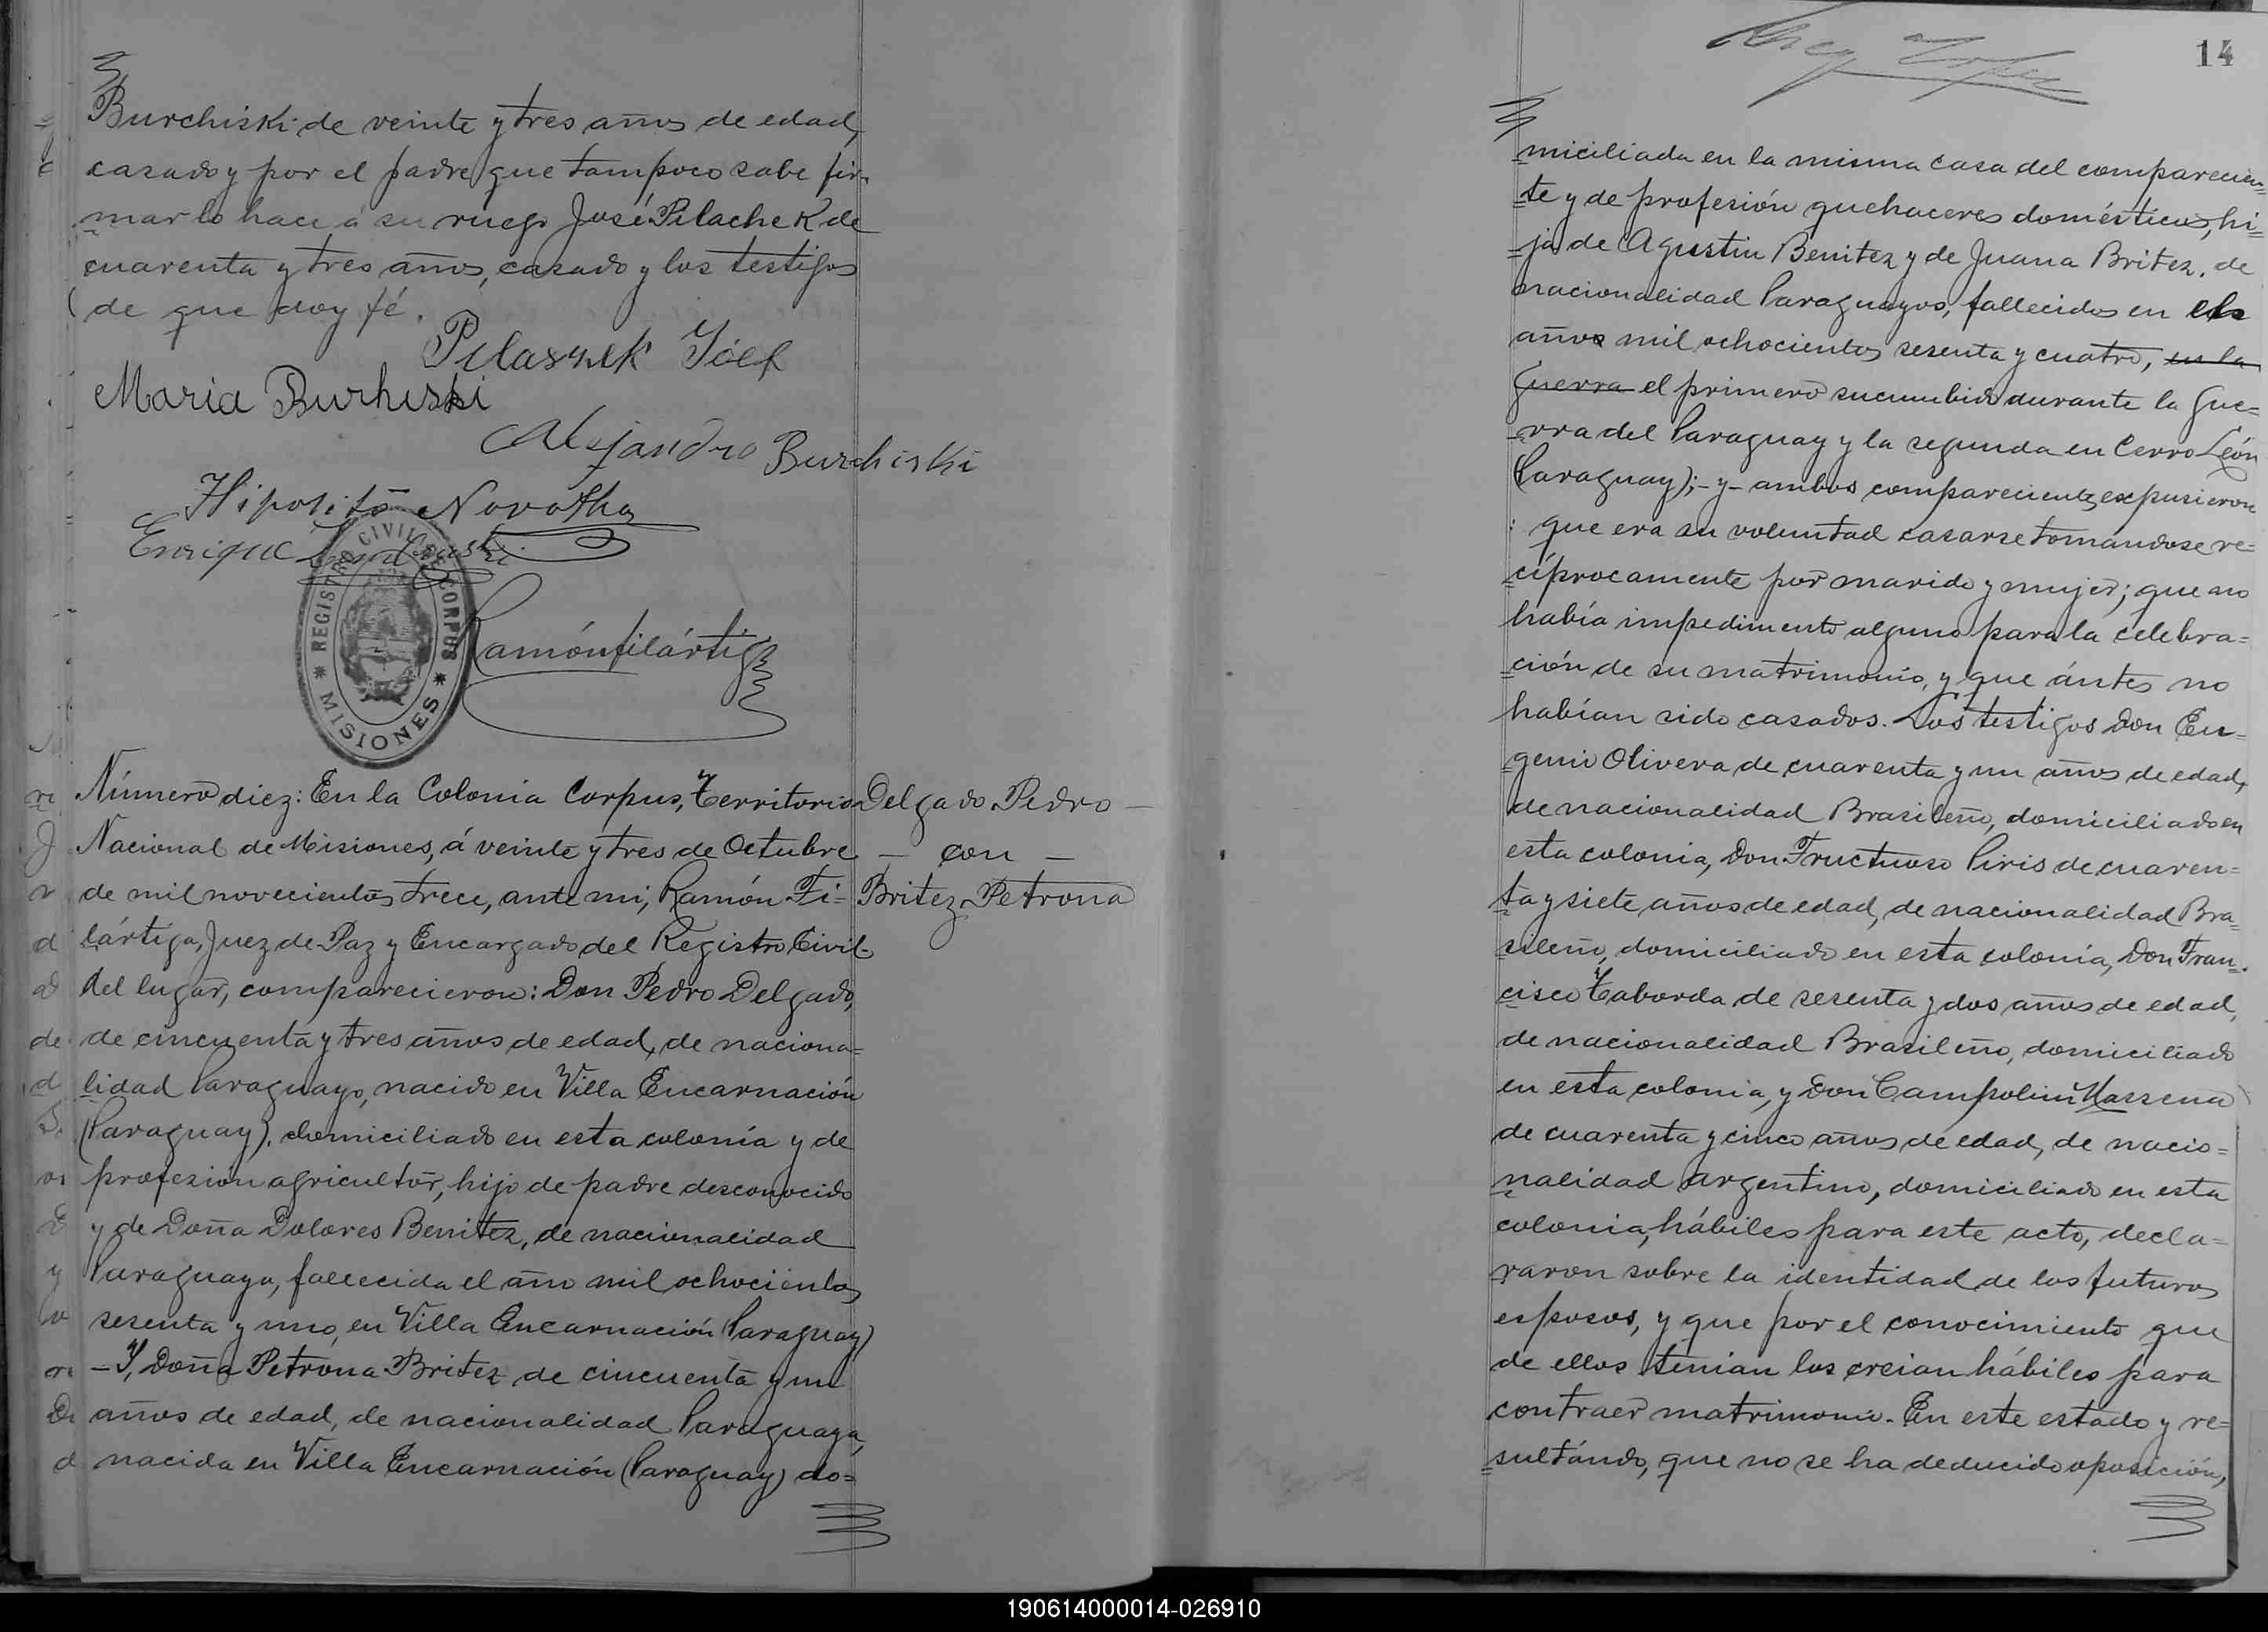 Burchiski de veinte y tres años de edad,
casado y por el padre que tampoco sabe fir-
mar lo hace á su ruego José Pilachek de
cuarenta y tres años, casado y los testigos
de que doy fé.
Maria Burhiski
Alejandro Burchiski
Hipolito Novotha
Enrique
REGISTRO CIVIL DE CORPUS
* MISIONES *
Ramón Filártiga
Número diez: En la Colonia Corpus, Territorio
Nacional de Misiones, á veinte y tres de Octubre
de mil novecientos trece, ante mi, Ramón Fi=
lártiga, Juez de Paz y Encargado del Registro Civil
del lugar, comparecieron: Don Pedro Delgado,
de cincuenta y tres años de edad, de naciona=
lidad Paraguayo, nacido en Villa Encarnación
(Paraguay), domiciliado en esta colonia y de
profesión agricultor, hijo de padre desconocido
y de Doña Dolores Benitez, de nacionalidad
Paraguaya, fallecida el año mil ochocientos
sesenta y uno, en Villa Encarnación (Paraguay)
– Y, Doña Petrona Britez de cincuenta y un
años de edad, de nacionalidad Paraguaya,
nacida en Villa Encarnación (Paraguay) do=
Delgado Pedro –
– con –
Britez Petrona
14
miciliada en la misma casa del comparecien=
te y de profesión quehaceres domésticos, hi=
ja de Agustin Benitez y de Juana Britez, de
nacionalidad Paraguayos, fallecidos en
años mil ochocientos sesenta y cuatro, en la
Guerra el primero sucumbido durante la Gue=
rra del Paraguay y la segunda en Cerro León
(Paraguay);- y- ambos comparecientes expusieron
: que era su voluntad casarse tomandose re=
ciprocamente por marido y mujer; que no
había impedimento alguno para la celebra=
ción de su matrimonio, y que ántes no
habían sido casados. Los testigos Don Eu=
genio Olivera de cuarenta y un años de edad,
de nacionalidad Brasileño, domiciliado en
esta colonia, Don Fructuoso Piris de cuaren=
ta y siete años de edad, de nacionalidad Bra=
sileño, domiciliado en esta colonia, Don Fran=
cisco Taborda de sesenta y dos años de edad,
de nacionalidad Brasileño, domiciliado
en esta colonia, y Don Campolin Massena
de cuarenta y cinco años de edad, de nacio=
nalidad argentino, domiciliado en esta
colonia, hábiles para este acto, decla=
raron sobre la identidad de los futuros
esposos, y que por el conocimiento que
de ellos tenian los creian hábiles para
contraer matrimonio. En este estado y re=
sultándo, que no se ha deducido oposición,
190614000014-026910